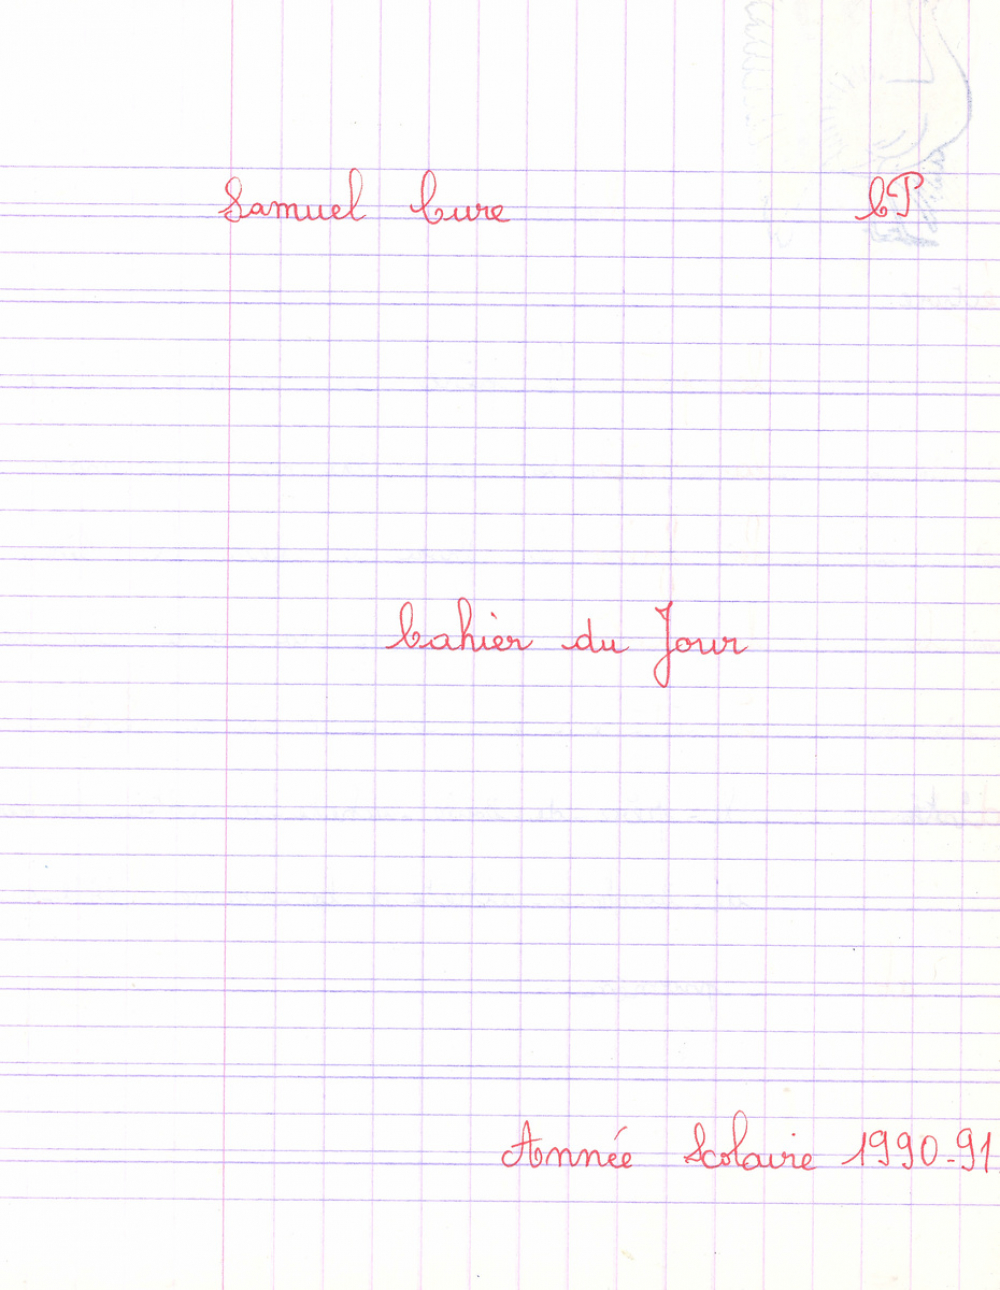 Samuel Cure CP
Cahier du Jour
Année Scolaire 1990-91